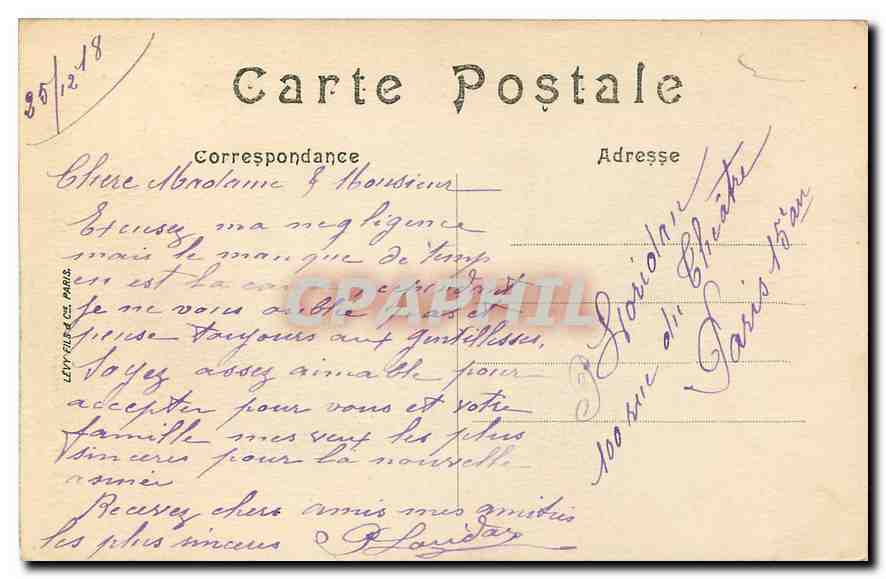 25/12 18
Carte Postale
Correspondance
Adresse
Chere Madame & Monsieur
Excusez ma negligence
mais le manque de temp
en est la cause cependant
je ne vous oublie pas et
pense toujours aux gentillesses,
Soyez assez aimable pour
accepter pour vous et votre
famille mes veux les plus
sinceres pour la nouvelle
année
Recevez chers amis mes amitiés
les plus sinceres
100 rue du Théâtre
Paris 15e arr
LÉVY FILS & Cie, PARIS.
CPAPHIL